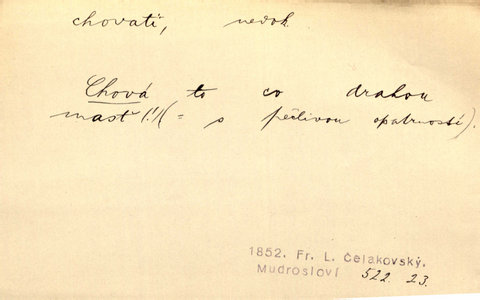 chovati, nedok.
Chová to co drahou
mast (!)(= s pečlivou opatrností).
1852. Fr. L. Čelakovský.
Mudrosloví 522. 23.